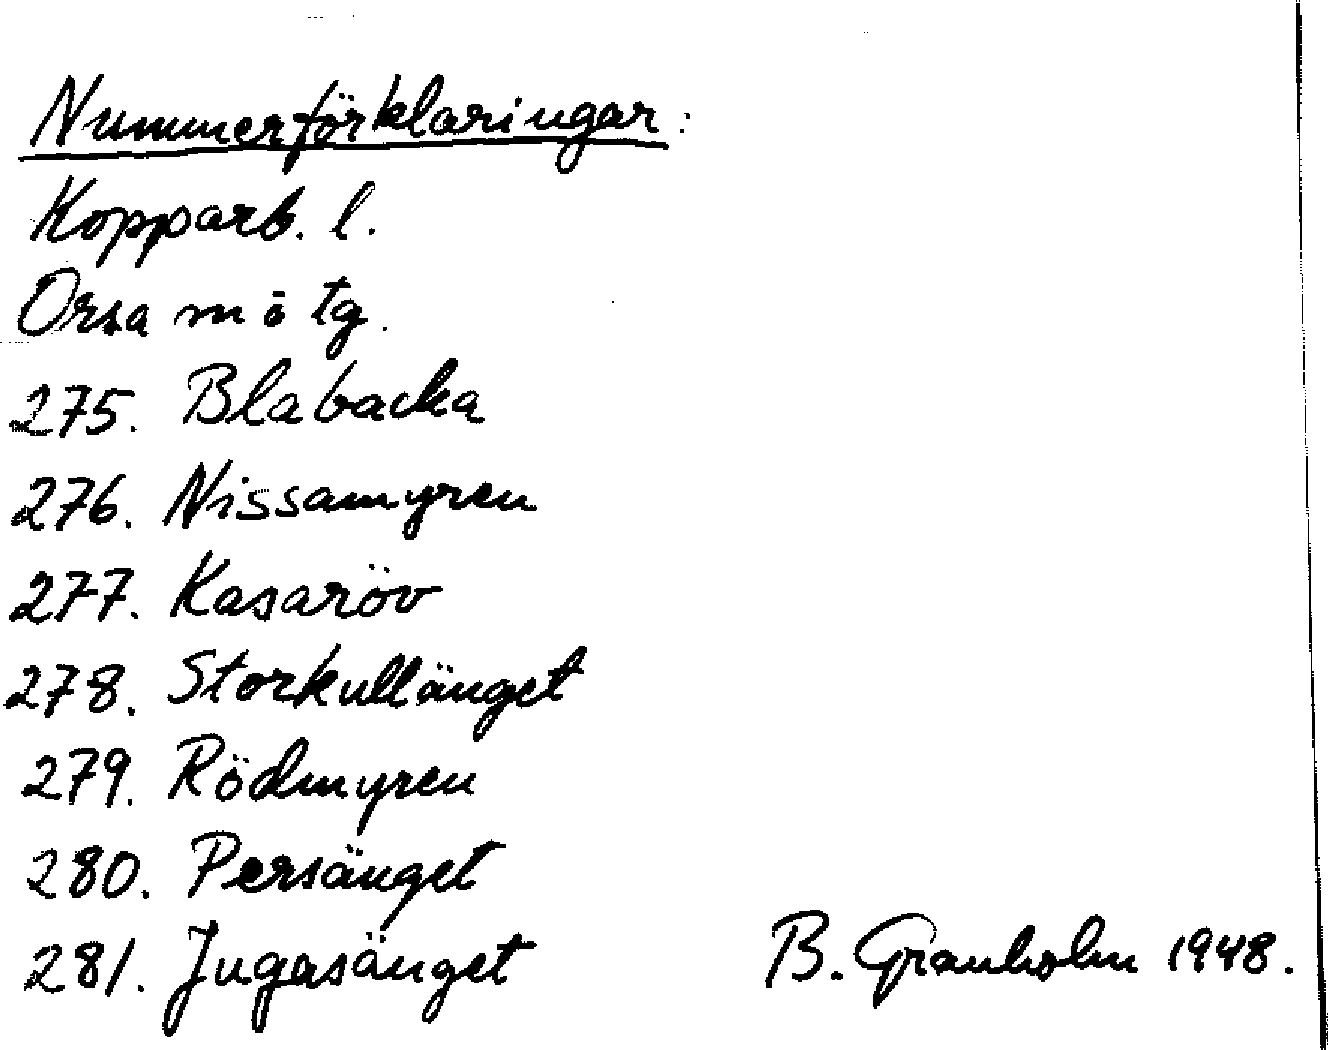 Nummerförklaringar:
Kopparb. l.
Orsa m ö tg.
275. Blabacka
276. Nissamyren
277. Kasaröv
278. Storkullänget
279. Rödmyren
280. Persänget
281. Jugasänget
B. Granholm 1948.